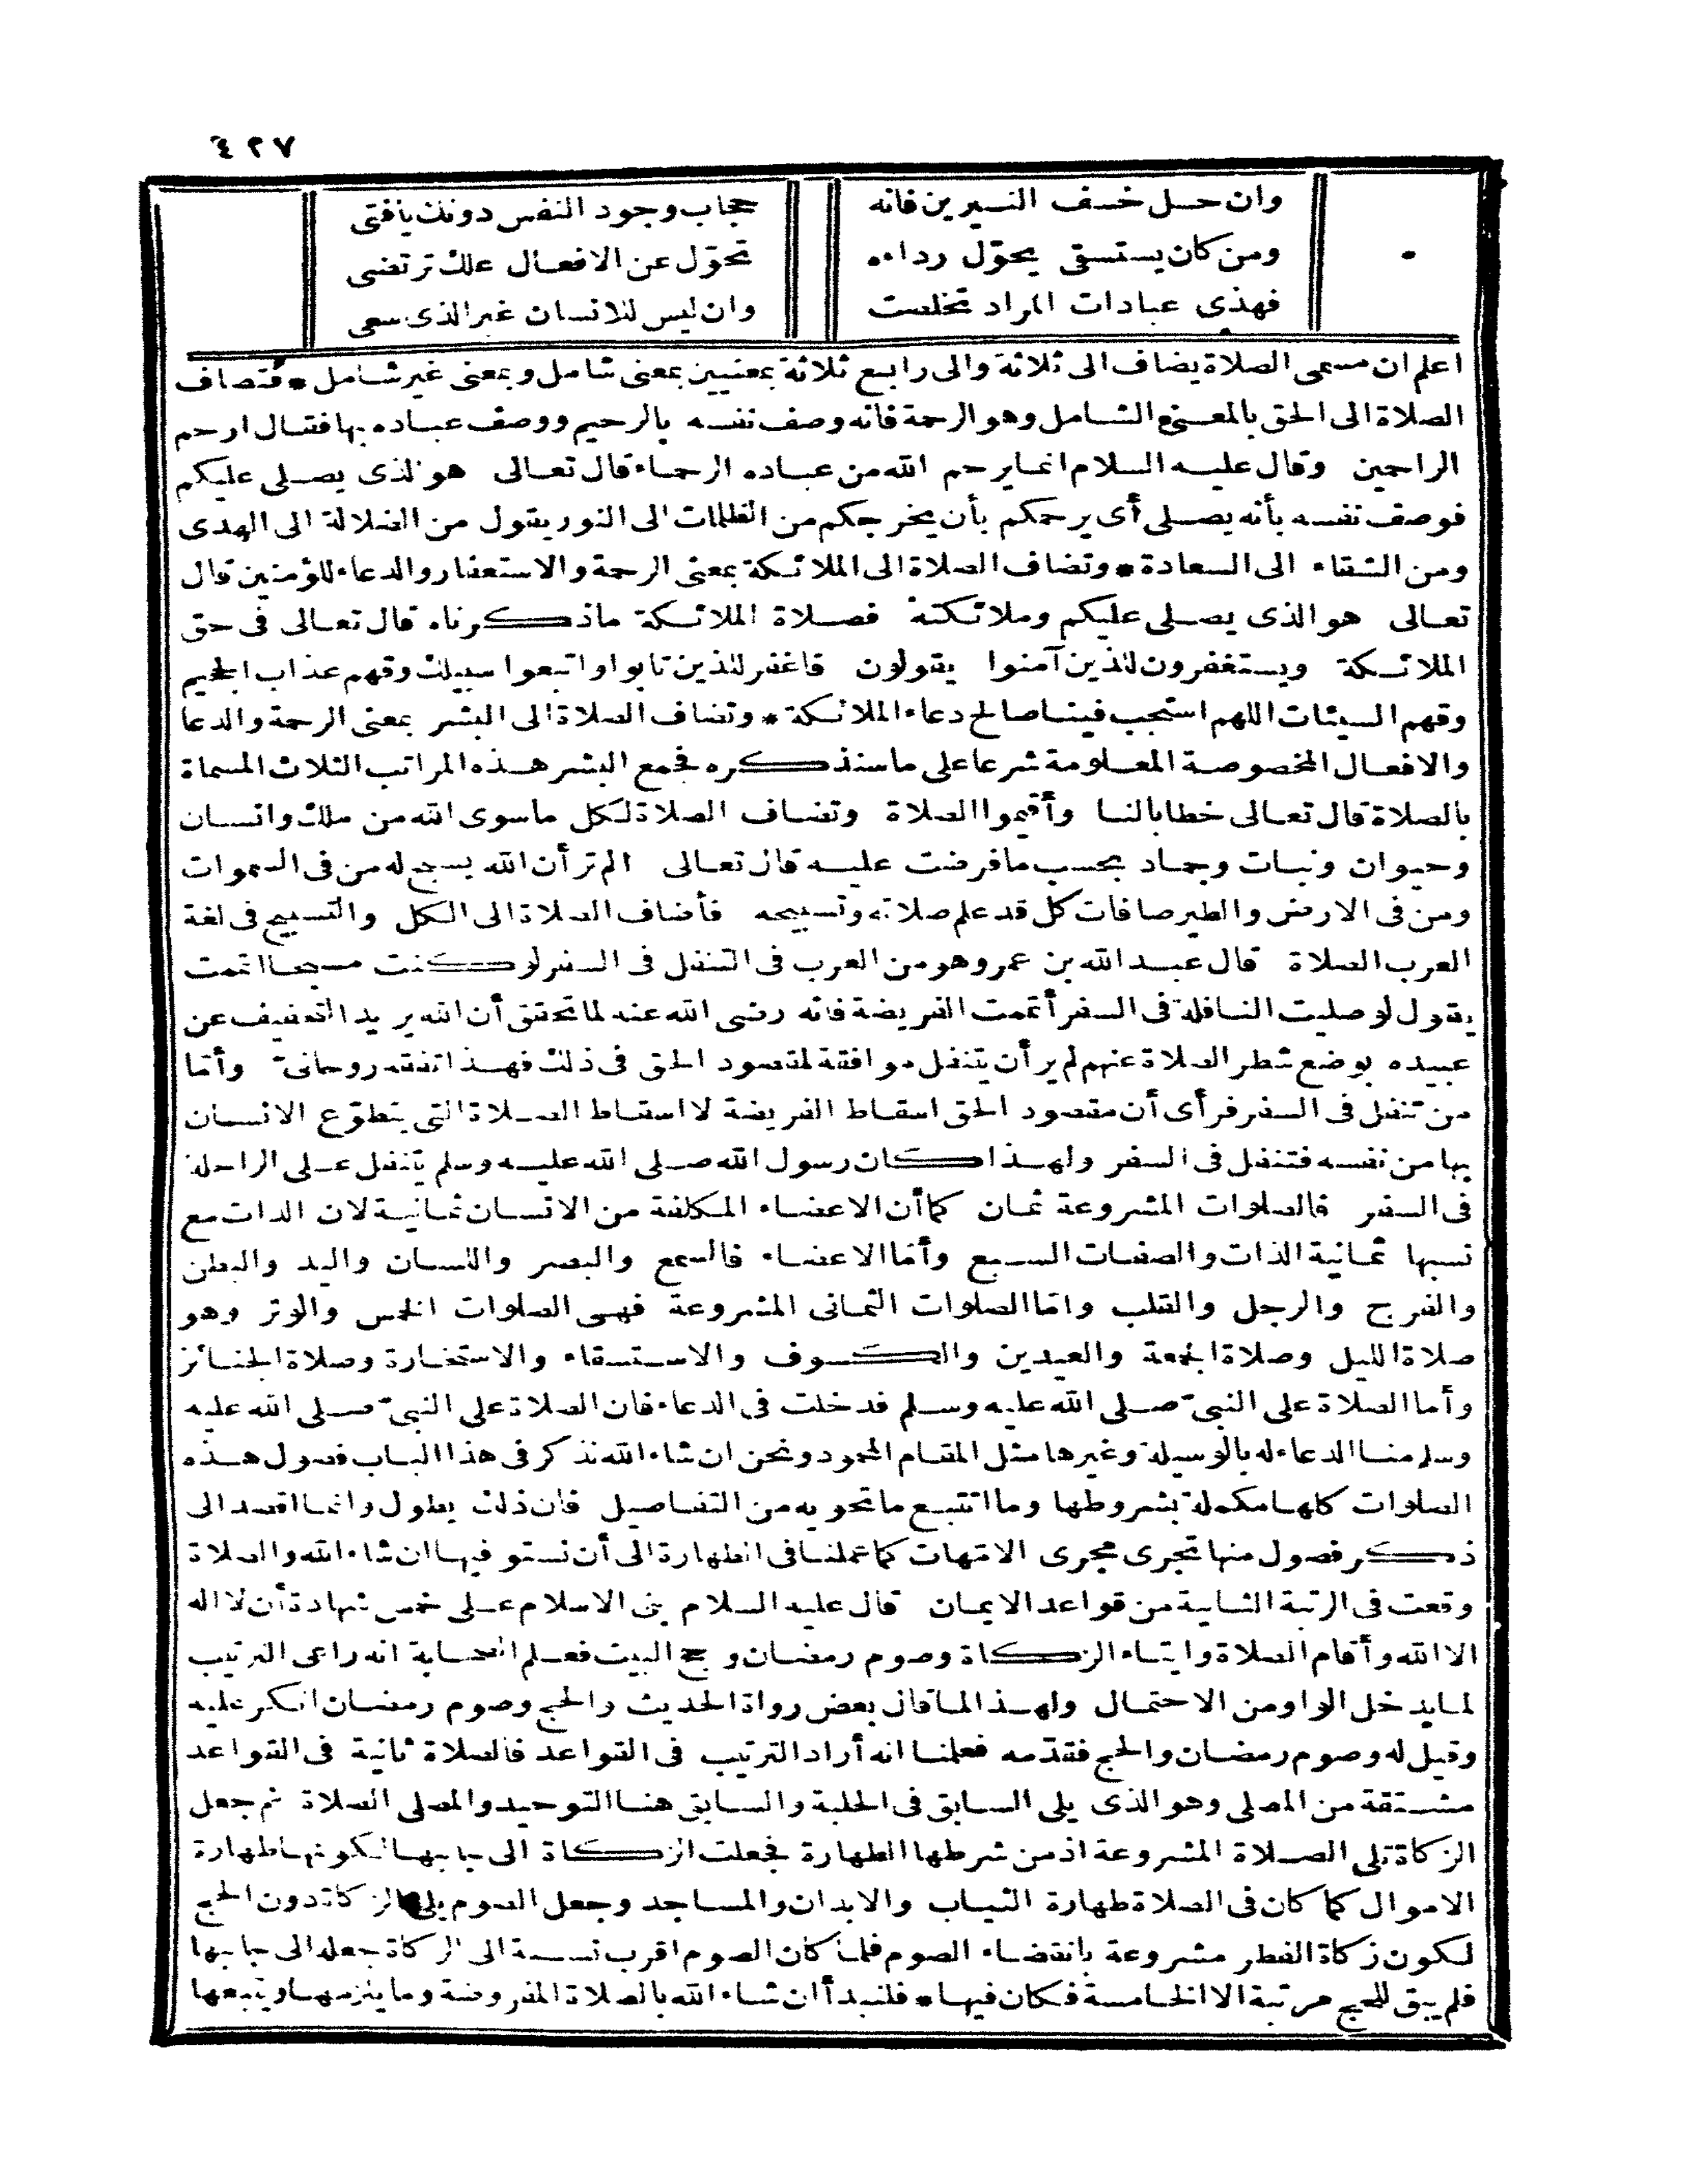 ٤٢٧
وان حل خسف النيرين فانه حجاب وجود النفس دونك يافتى
ومن كان يستسقى يحوّل رداءه تحوّل عن الافعال علك ترتضى
فهذى عبادات المراد تخلصت وان ليس للانسان غير الذى سعى
اعلم ان مسمى الصلاة يضاف الى ثلاثة والى رابع ثلاثة بمعنيين بمعنى شامل وبمعنى غير شامل * فتضاف
الصلاة الى الحق بالمعنى الشامل وهو الرحمة فانه وصف نفسه بالرحيم ووصف عباده بها فقال ارحم
الراحمين وقال عليه السلام انما يرحم الله من عباده الرحماء قال تعالى هو الذى يصلى عليكم
فوصف نفسه بأنه يصلى أى يرحمكم بأن يخرجكم من الظلمات الى النور يقول من الضلالة الى الهدى
ومن الشقاء الى السعادة * وتضاف الصلاة الى الملائكة بمعنى الرحمة والاستغفار والدعاء للؤمنين قال
تعالى هو الذى يصلى عليكم وملائكته فصلاة الملائكة ماذكرناه قال تعالى فى حق
الملائكة ويستغفرون للذين آمنوا يقولون فاغفر للذين تابوا واتبعوا سبيلك وقهم عذاب الجحيم
وقهم السيئات اللهم استجب فينا صالح دعاء الملائكة * وتضاف الصلاة الى البشر بمعنى الرحمة والدعا
والافعال المخصوصة المعلومة شرعا على ماسنذكره فجمع البشر هذه المراتب الثلاث المسماة
بالصلاة قال تعالى خطابا لنا وأقيموا الصلاة وتضاف الصلاة لكل ماسوى الله من ملك وانسان
وحيوان ونبات وجماد بحسب مافرضت عليه قال تعالى الم تر أن الله يسبح له من فى السموات
ومن فى الارض والطير صافات كل قد علم صلاته وتسبيحه فأضاف الصلاة الى الكل والتسبيح فى لغة
العرب الصلاة قال عبد الله بن عمر وهو من العرب فى التنفل فى السفر لو كنت مسبحا اتممت
يقول لو صليت النافلة فى السفر أتممت الفريضة فانه رضى الله عنه لما تحقق أن الله يريد التخفيف عن
عبيده بوضع شطر الصلاة عنهم لم ير أن يتنفل موافقة لمقصود الحق فى ذلك فهذا تفقه روحانىّ وأمّا
من تنفل فى السفر فرأى أن مقصود الحق اسقاط الفريضة لا اسقاط الصلاة التى يتطوّع الانسان
بها من نفسه فتنفل فى السفر ولهذا كان رسول الله صلى الله عليه وسلم يتنفل على الراحلة
فى السفر فالصلوات المشروعة ثمان كما أن الاعضاء المكلفة من الانسان ثمانية لان الذات مع
نسبها ثمانية الذات والصفات السبع وأمّا الاعضاء فالسمع والبصر واللسان واليد والبطن
والفرج والرجل والقلب وامّا الصلوات الثمانى المشروعة فهى الصلوات الخمس والوتر وهو
صلاة الليل وصلاة الجمعة والعيدين والكسوف والاستسقاء والاستخارة وصلاة الجنائز
وأما الصلاة على النبىّ صلى الله عليه وسلم فدخلت فى الدعاء فان الصلاة على النبىّ صلى الله عليه
وسلم منا الدعاء له بالوسيلة وغيرها مثل المقام المحمود ونحن ان شاء الله نذكر فى هذا الباب فصول هذه
الصلوات كلها مكملة بشروطها وما اتتبع ماتحويه من التفاصيل فان ذلك يطول وانما اقصد الى
ذكر فصول منها تجرى مجرى الامّهات كما عملنا فى الطهارة الى أن نستوفيها ان شاء الله والصلاة
وقعت فى الرتبة الثانية من قواعد الايمان قال عليه السلام بنى الاسلام على خمس شهادة أن لا اله
الا الله وأقام الصلاة وايتاء الزكاة وصوم رمضان وحج البيت فعلم الصحابة انه راعى الترتيب
لما يدخل الواو من الاحتمال ولهذا لما قال بعض رواة الحديث والحج وصوم رمضان انكر عليه
وقيل له وصوم رمضان والحج فقدّمه فعلمنا انه أراد الترتيب فى القواعد فالصلاة ثانية فى القواعد
مشتقة من المصلى وهو الذى يلى السابق فى الحلبة والسابق هنا التوحيد والمصلى الصلاة ثم جعل
الزكاة تلى الصلاة المشروعة اذ من شرطها الطهارة فجعلت الزكاة الى جانبها لكونها طهارة
الاموال كما كان فى الصلاة طهارة الثياب والابدان والمساجد وجعل الصوم يلى الزكاة دون الحج
لكون زكاة الفطر مشروعة بانقضاء الصوم فلما كان الصوم اقرب نسبة الى الزكاة جعله الى جانبها
فلم يبق للحج مرتبة الا الخامسة فكان فيها * فلنبدأ ان شاء الله بالصلاة المفروضة وما يلزمها ويتبعها